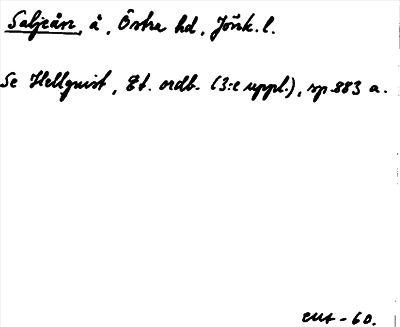 Saljeån, å, Östra hd, Jönk. l.
Se Hellquist, Et. ordb. (3:e uppl.), sp. 883 a.
-60.